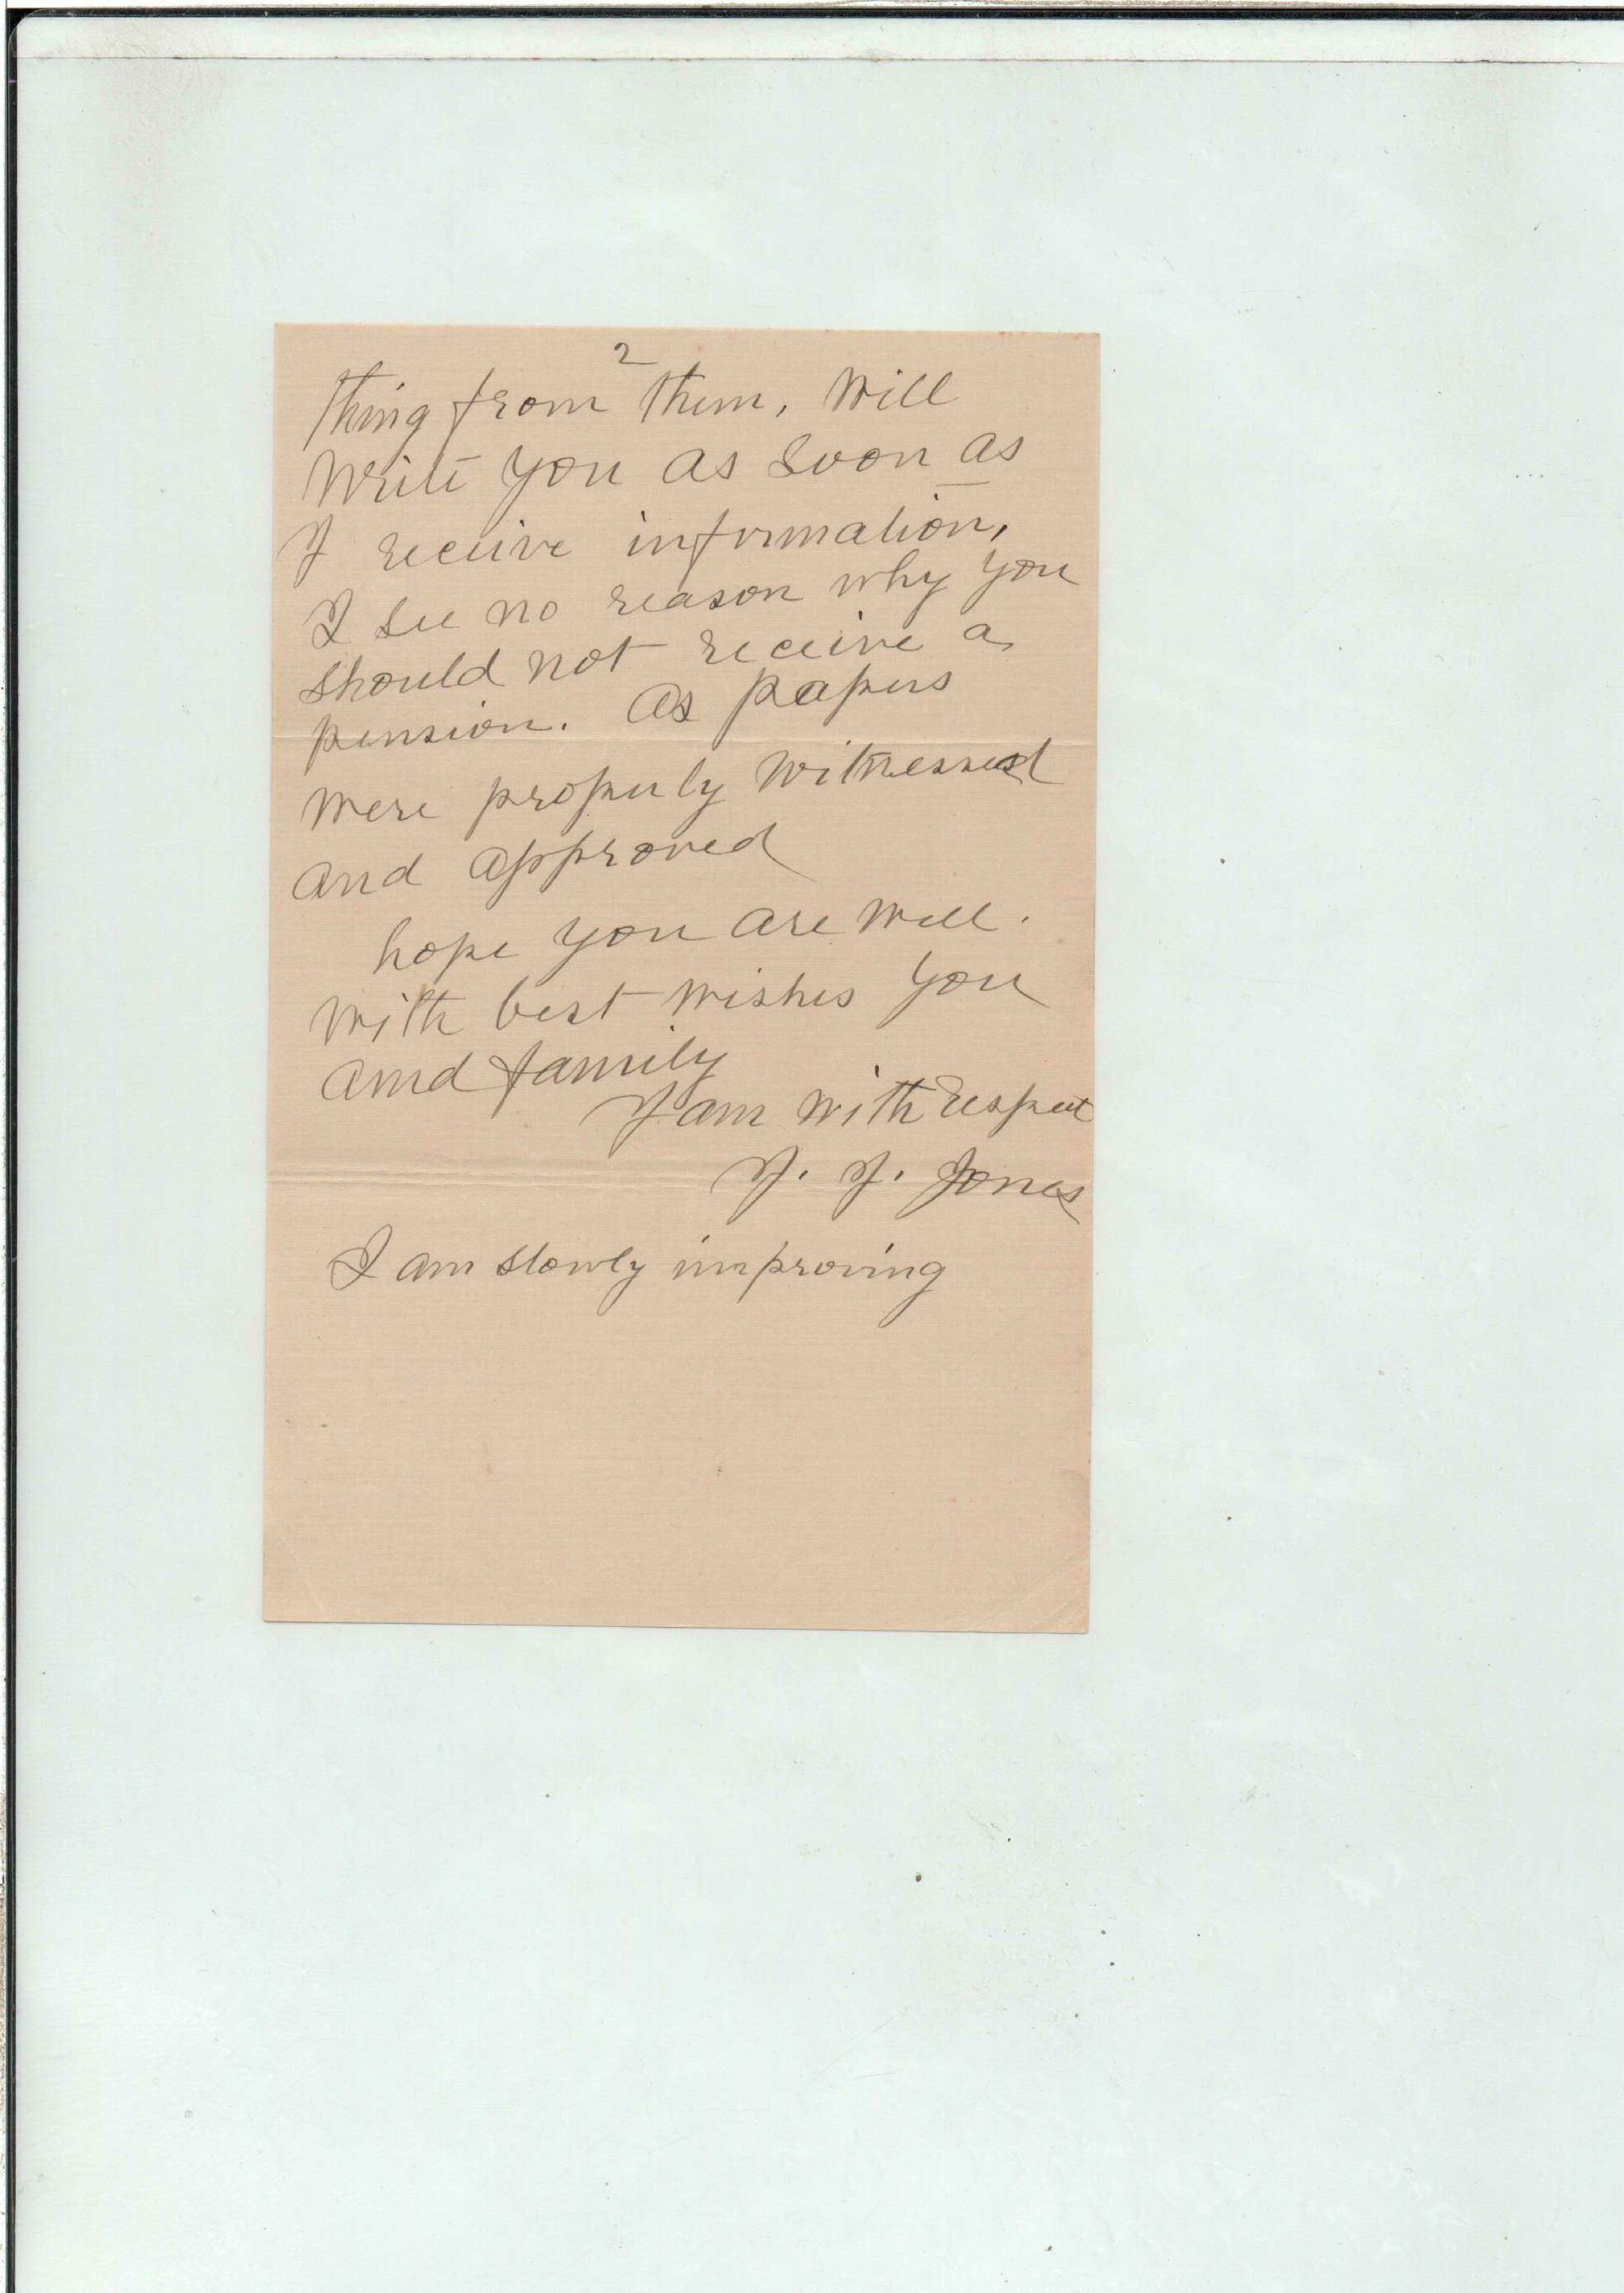 2
Thing from Them, Will
Write you as soon as
I receive information,
I see no reason why you
should not receive a
pension. As papers
were properly witnessed
and approved
hope you are well.
With best wishes you
amd family
I am with respect
Jones
I am slowly improving